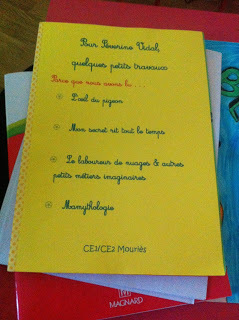 Pour Séverine Vidal
quelques petits travaux
Parce que nous avons lu . . .
L'oeil du pigeon
Mon secret rit tout le temps
Le laboureur de nuages & autres
petits métiers imaginaires
Mamythologie
CE1/CE2 Mouriès
MAGNARD